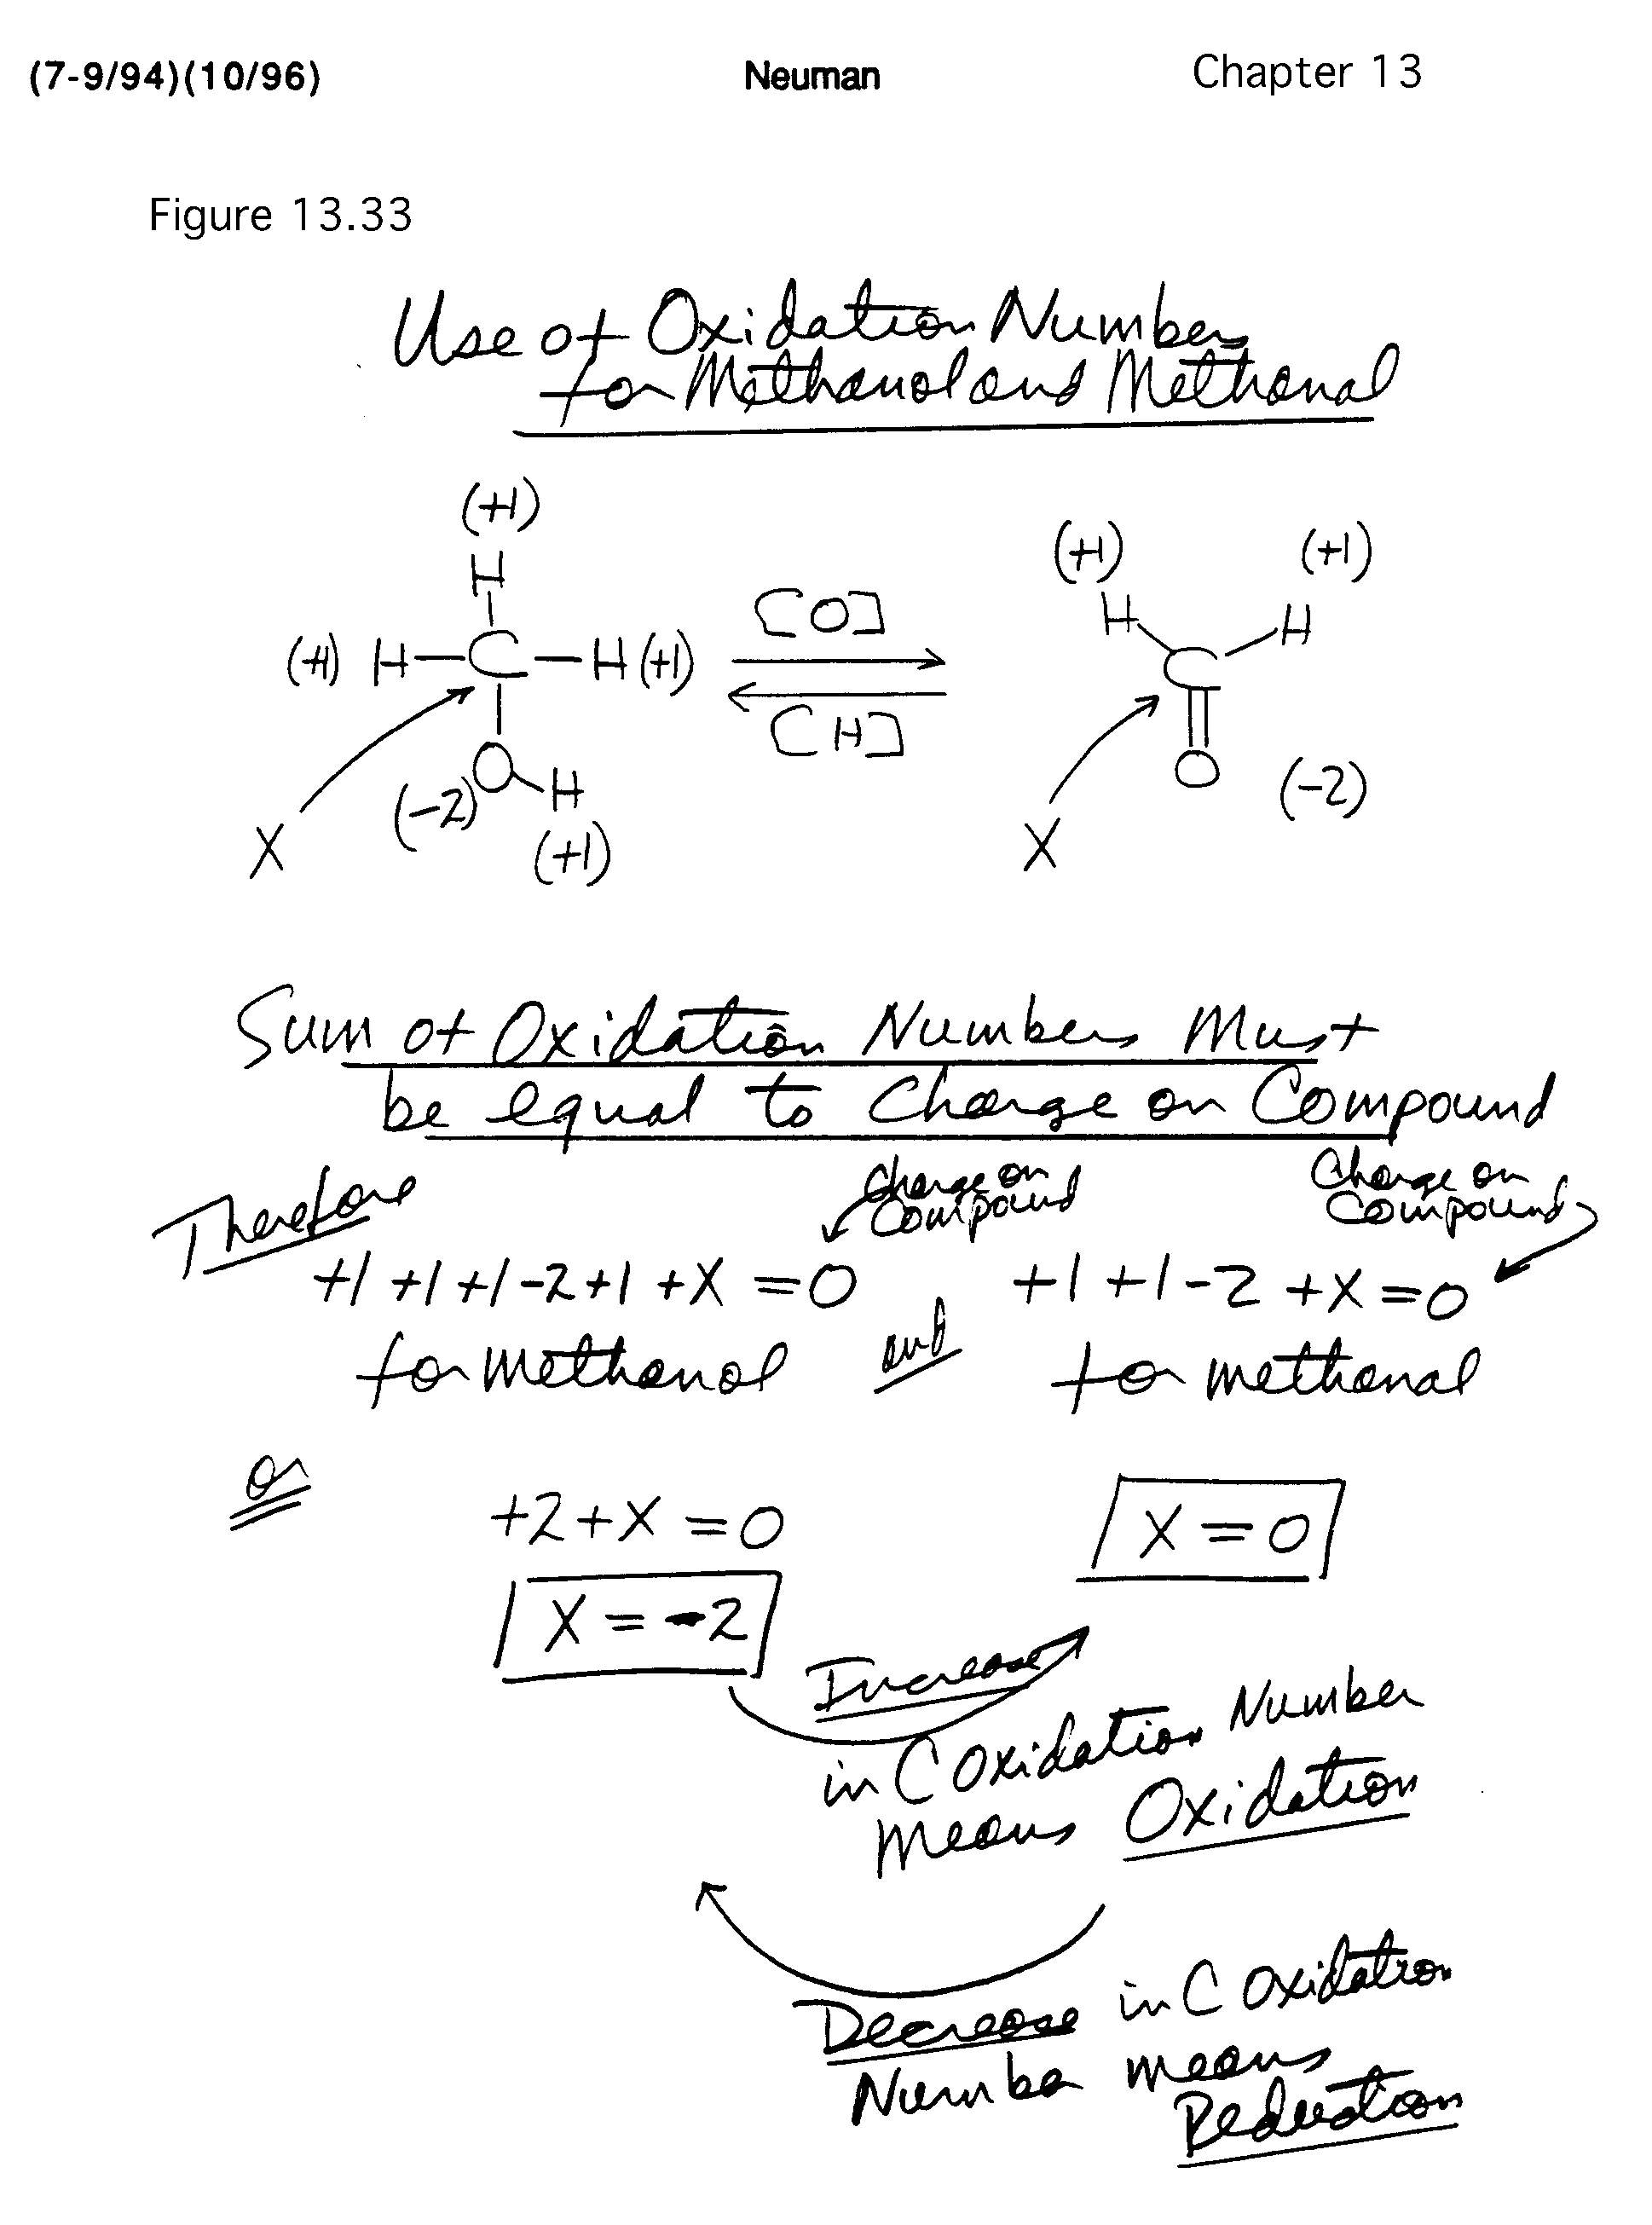 (7-9/94)(10/96) Neuman Chapter 13
Figure 13.33
Use of Oxidation Numbers
for Methanol and Methanal
(+1)
H
(+1) H—C—H (+1)
O
(-2)
H
(+1)
X
[O]
[H]
(+1) (+1)
H H
C
O
(-2)
X
Sum of Oxidation Numbers Must
be equal to Charge on Compound
Therefore
Charge on
Compound
Charge on
Compound
+1 +1 +1 -2 +1 +X = 0
and
+1 +1 -2 +X = 0
for methanol
for methanal
or
+2 + X = 0
X = 0
X = -2
Increase
in C Oxidation Number
means Oxidation
Decrease in C Oxidation
Number means
Reduction